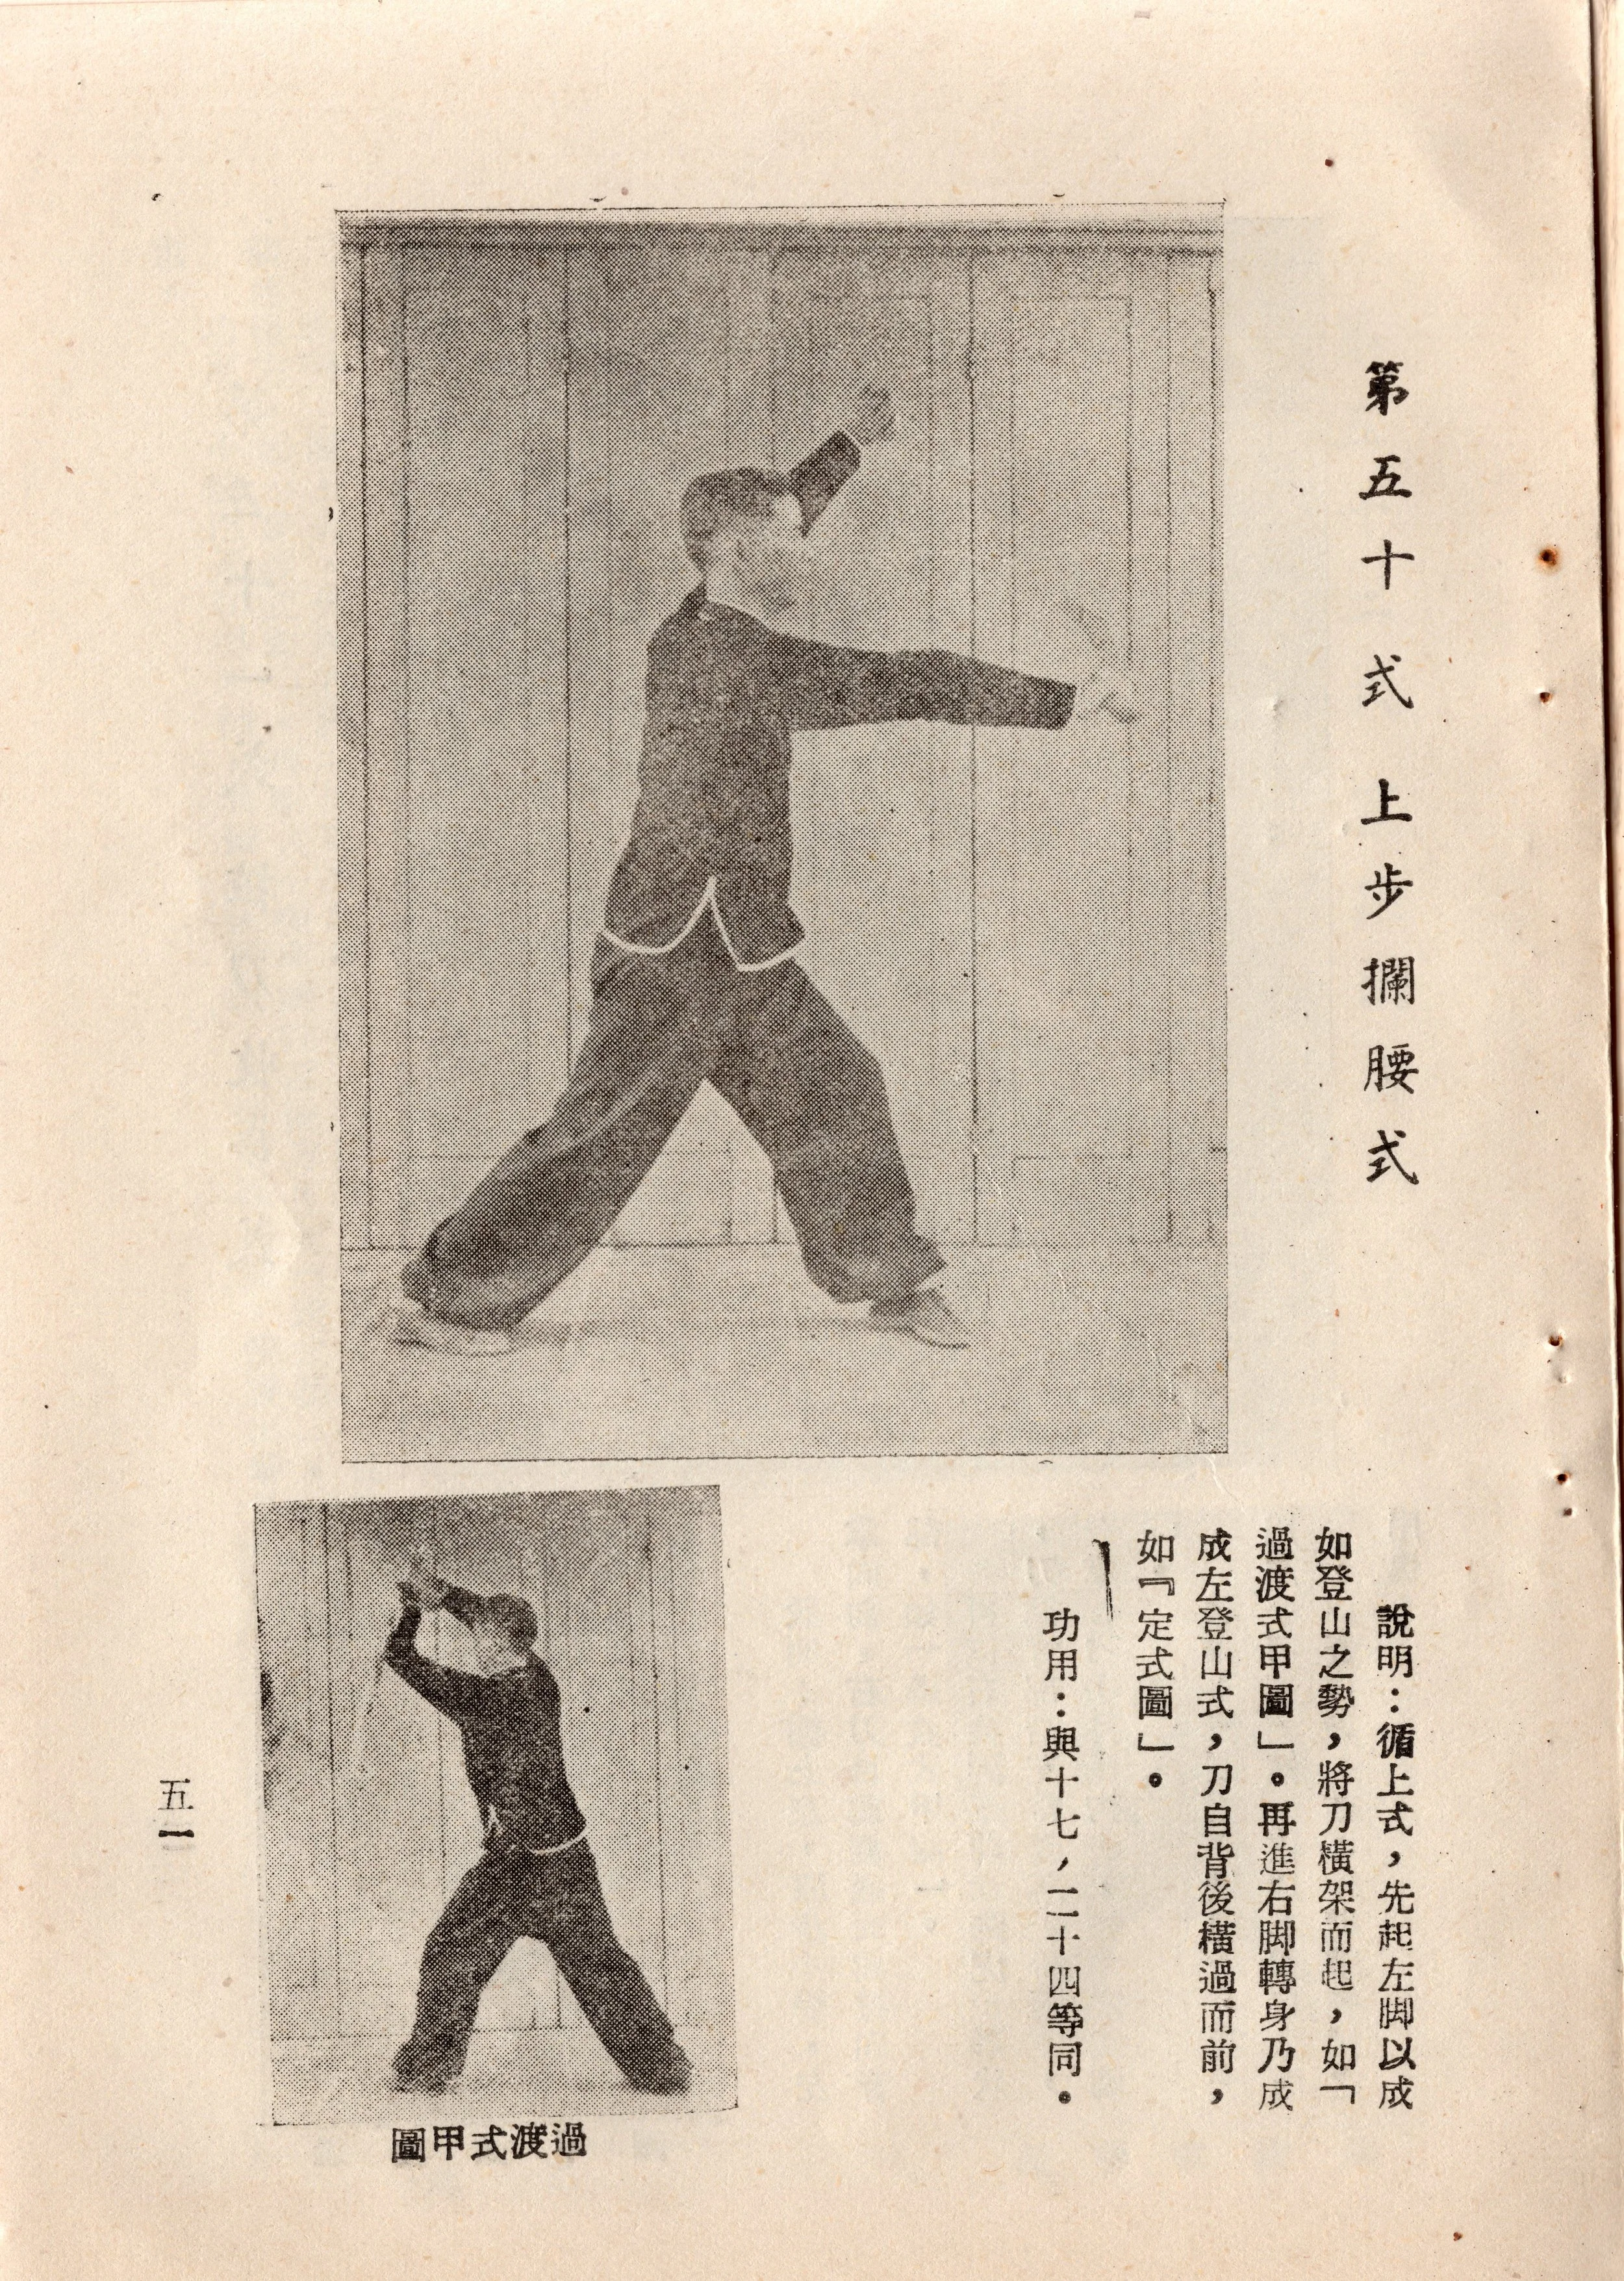 第五十式 上步攔腰式
說明：循上式，先起左脚以成
如登山之勢，將刀橫架而起，如「
過渡式甲圖」。再進右脚轉身乃成
成左登山式，刀自背後橫過而前，
如『定式圖」。
功用：與十七，二十四等同。
過渡式甲圖
五一